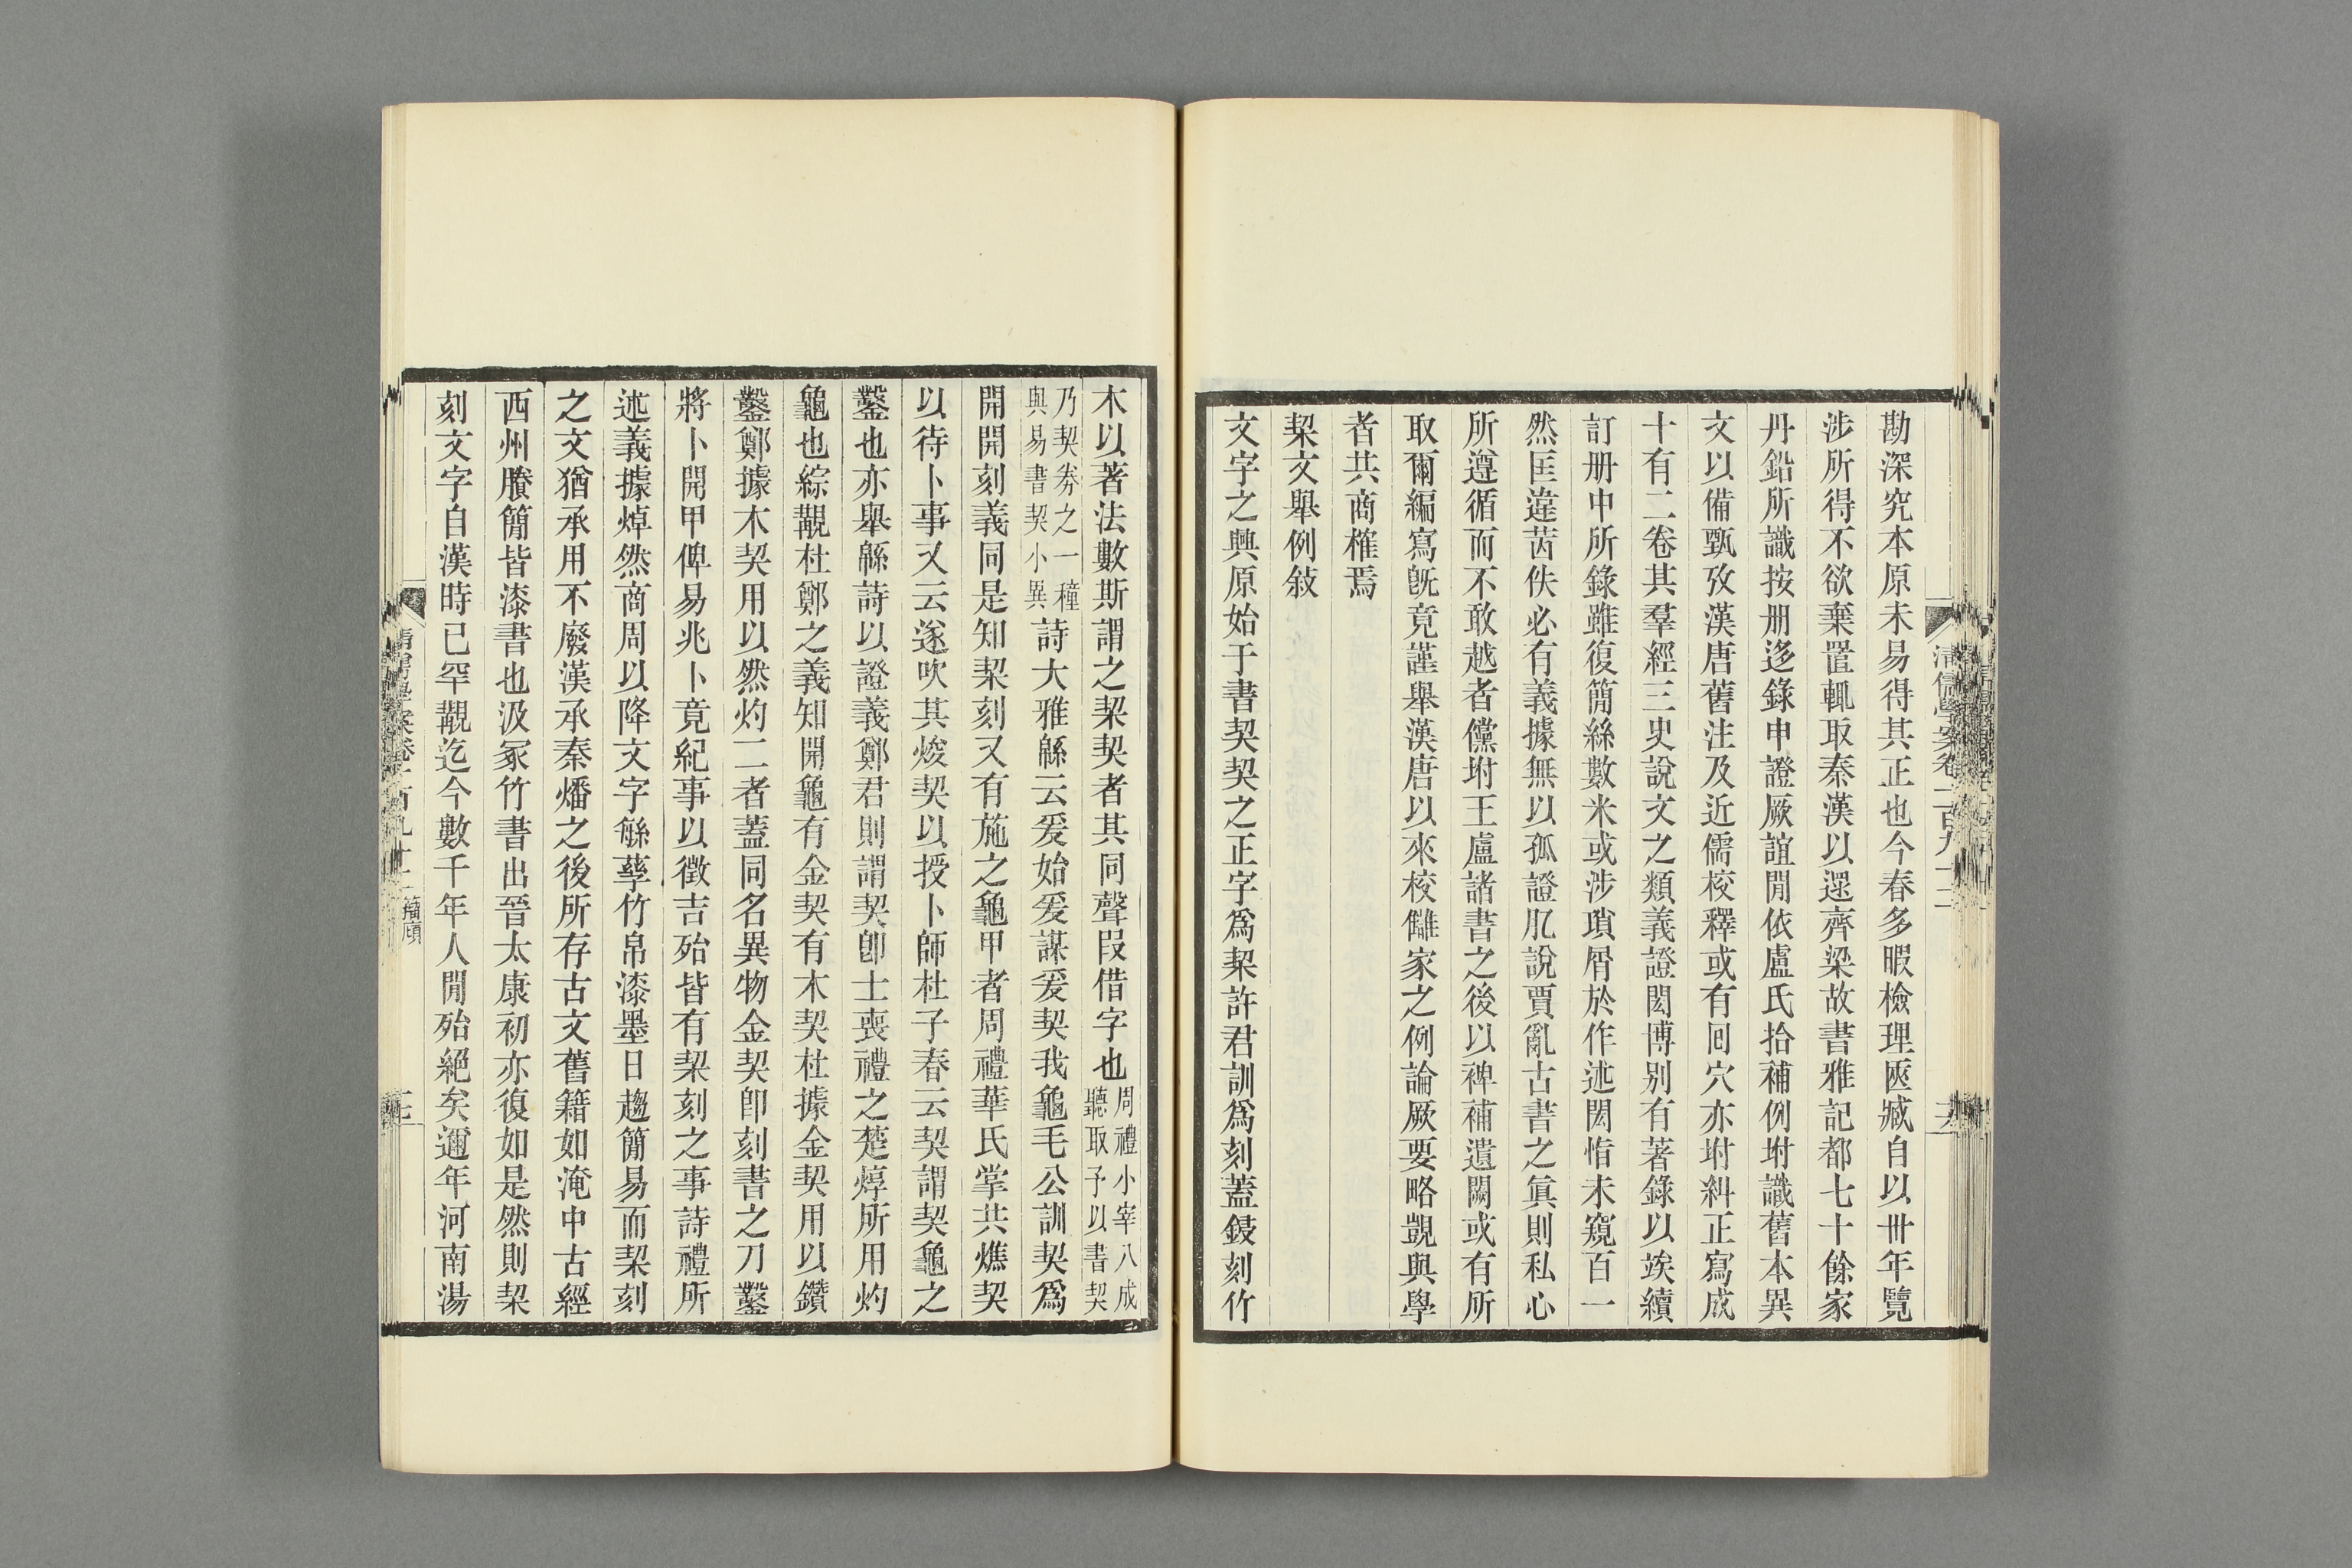 勘深究本原未易得其正也今春多暇檢理匧臧自以卅年覽
涉所得不欲棄置輒取秦漢以還齊梁故書雅記都七十餘家
丹鉛所識按册迻錄申證厥誼閒依盧氏拾補例坿識舊本異
文以備甄攷漢唐舊注及近儒校釋或有回穴亦坿糾正寫成
十有二卷其羣經三史說文之類義證閎博别有著錄以竢續
訂册中所錄雖復簡絲數米或涉瑣屑於作述閎恉未窺百一
然匡違茜佚必有義據無以孤證肊說賈亂古書之眞則私心
所遵循而不敢越者儻坿王盧諸書之後以裨補遺闕或有所
取爾編寫旣竟謹舉漢唐以來校讎家之例論厥要略覬與學
者共商榷焉
栔文舉例敍
文字之興原始于書契契之正字爲栔許君訓爲刻蓋鋟刻竹
清儒學案卷一百九十二
木以著法數斯謂之栔契者其同聲叚借字也周禮小宰八成聽取予以書契
乃契劵之一種與易書契小異詩大雅緜云爰始爰謀爰契我龜毛公訓契爲
開開刻義同是知栔刻又有施之龜甲者周禮華氏掌共燋契
以待卜事又云遂吹其焌契以授卜師杜子春云契謂契龜之
鑿也亦舉緜詩以證義鄭君則謂契卽士喪禮之楚焞所用灼
龜也綜覶杜鄭之義知開龜有金契有木契杜據金契用以鑽
鑿鄭據木契用以然灼二者蓋同名異物金契卽刻書之刀鑿
將卜開甲俾易兆卜竟紀事以徵吉殆皆有栔刻之事詩禮所
述義據焯然商周以降文字緐孳竹帛漆墨日趨簡易而栔刻
之文猶承用不廢漢承秦燔之後所存古文舊籍如淹中古經
西州賸簡皆漆書也汲冢竹書出晉太康初亦復如是然則栔
刻文字自漢時已罕覯迄今數千年人閒殆絕矣邇年河南湯